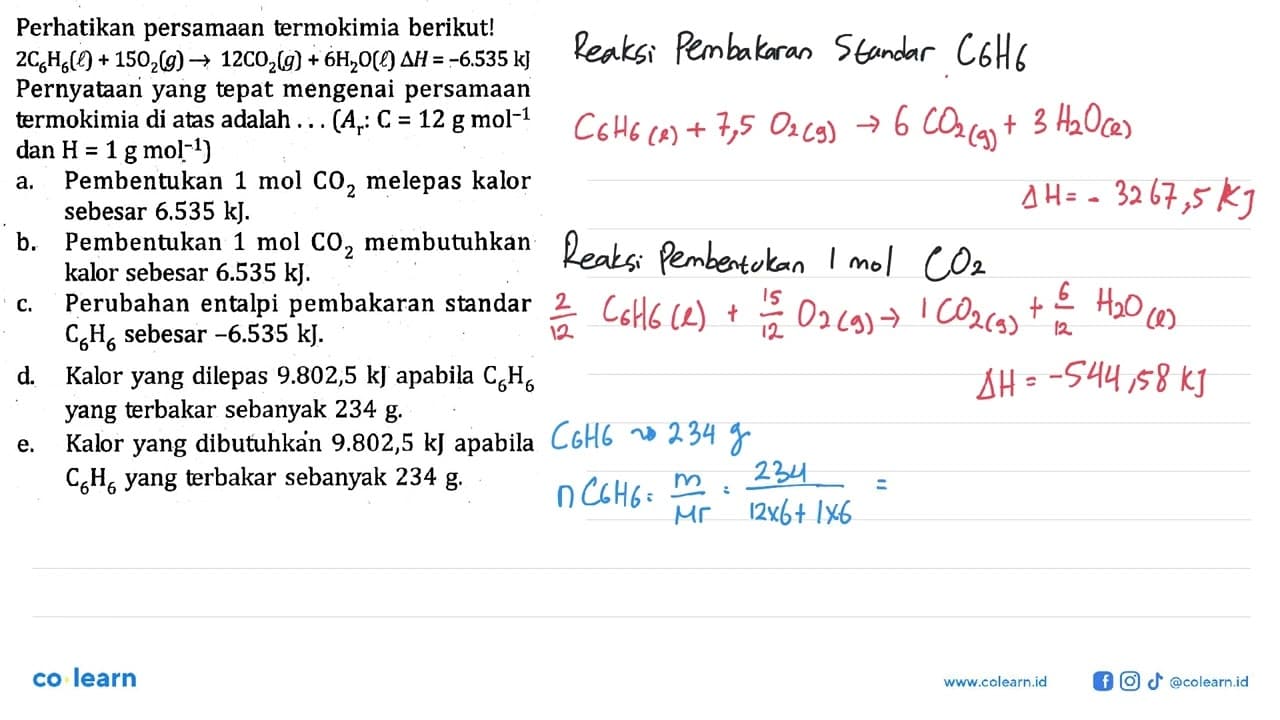 Perhatikan persamaan termokimia berikut!
2C₆H₆(ℓ) + 15O₂(g) → 12CO₂(g) + 6H₂O(ℓ) ΔH = −6.535 kJ
Pernyataan yang tepat mengenai persamaan
termokimia di atas adalah . . . (Aᵣ: C = 12 g mol⁻¹
dan H = 1 g mol⁻¹)
a. Pembentukan 1 mol CO₂ melepas kalor
sebesar 6.535 kJ.
b. Pembentukan 1 mol CO₂ membutuhkan
kalor sebesar 6.535 kJ.
c. Perubahan entalpi pembakaran standar
C₆H₆ sebesar −6.535 kJ.
d. Kalor yang dilepas 9.802,5 kJ apabila C₆H₆
yang terbakar sebanyak 234 g.
e. Kalor yang dibutuhkan 9.802,5 kJ apabila
C₆H₆ yang terbakar sebanyak 234 g.
Reaksi Pembakaran Standar C6H6
C6H6(l) + 7,5 O2(g) → 6 CO2(g) + 3 H2O(l)
ΔH = - 3267,5 kJ
Reaksi Pembentukan 1 mol CO2
2/12 C6H6(l) + 15/12 O2(g) → 1 CO2(g) + 6/12 H2O(l)
ΔH = -544,58 kJ
C6H6 ⇝ 234 g
n C6H6 = m/Mr = 234/12x6 + 1x6 =
co learn
www.colearn.id
@colearn.id